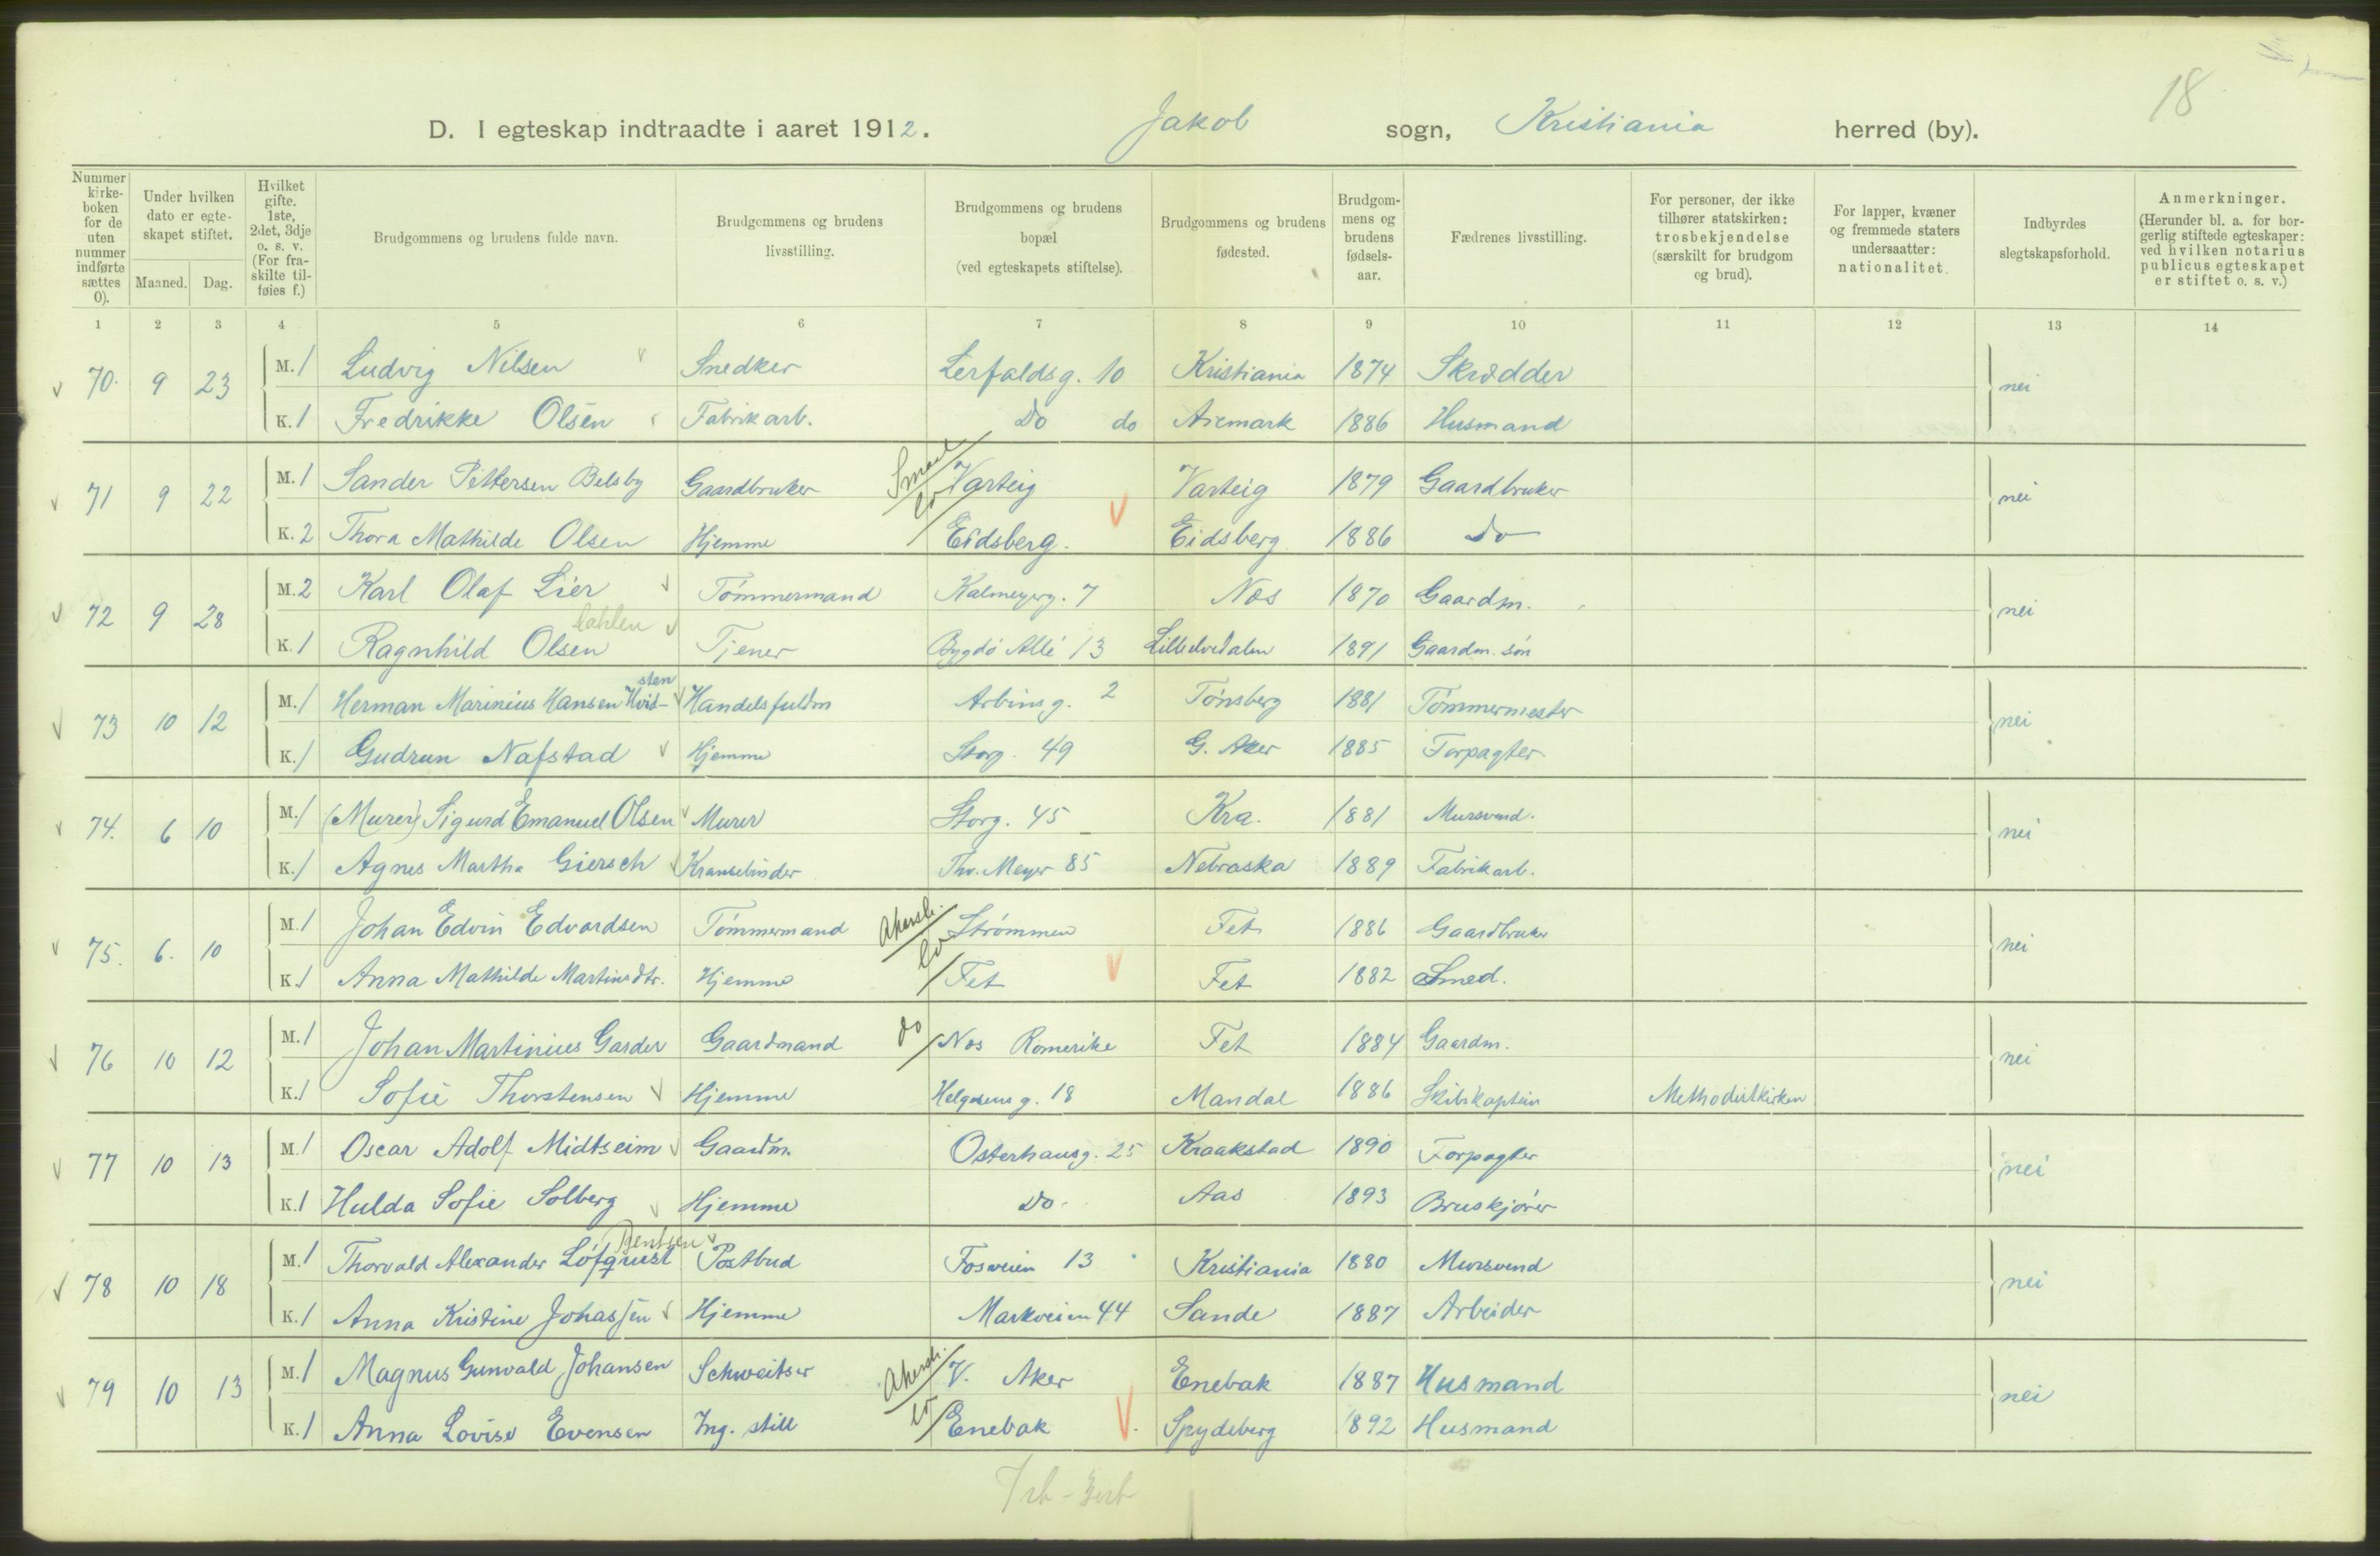 18
D. I egteskap indtraadte i aaret 1912. Jakob sogn, Kristiania herred (by).
Nummer kirkeboken for de uten nummer indførte sættes 0). Under hvilken dato er egteskapet stiftet. Maaned. Dag. Hvilket gifte. 1ste, 2det, 3dje o. s. v. (For fraskilte tilføies f.) Brudgommens og brudens fulde navn. Brudgommens og brudens livsstilling. Brudgommens og brudens bopæl (ved egteskapets stiftelse). Brudgommens og brudens fødested. Brudgommens og brudens fødselsaar. Fædrenes livsstilling. For personer, der ikke tilhører statskirken: trosbekjendelse (særskilt for brudgom og brud). For lapper, kvæner og fremmede staters undersaatter: nationalitet. Indbyrdes slegtskapsforhold. Anmerkninger. (Herunder bl. a. for borgerlig stiftede egteskaper: ved hvilken notarius publicus egteskapet er stiftet o. s. v.)
1 2 3 4 5 6 7 8 9 10 11 12 13 14
70. 9 23 M. 1 Ludvig Nilsen Snedker Lerfaldsg. 10 Kristiania 1874 Skrædder nei
K. 1 Fredrikke Olsen Fabrikarb. Do do Aremark 1886 Husmand
71 9 22 M. 1 Sander Pettersen Belsby Gaardbruker Smaal Varteig Varteig 1879 Gaardbruker nei
K. 2 Thora Mathilde Olsen Hjemme Eidsberg. Eidsberg 1886 Do
72 9 28 M. 2 Karl Olaf Lier Tömmermand Kalmeyerg. 7 Nes 1870 Gaardm. nei
K. 1 Ragnhild Olsen Tjener Bygdö Allé 13 Lilleelvedalen 1891 Gaardm. sön
73 10 12 M. 1 Herman Marinius Hansen Hvitsten Handelsfuldm Arbinsg. 2 Tönsberg 1881 Tömmermester nei
K. 1 Gudrun Nafstad Hjemme Storg. 49 G. Aker 1885 Forpagter.
74. 6 10 M. 1 (Murer) Sigurd Emanuel Olsen Murer Storg. 45 Kra. 1881 Mursvend. nei
K. 1 Agnes Martha Giersch Kransebinder Thv. Meyer 85 Nebraska 1889 Fabrikarb.
75. 6. 10 M. 1 Johan Edvin Edvardsen Tömmermand Akersh. Strömmen Fet 1886 Gaardbruker nei
K. 1 Anna Mathilde Martinsdtr. Hjemme Fet Fet 1882 Smed.
76 10 12 M. 1 Johan Martinius Garder Gaardmand do Nes Romerike Fet 1884 Gaardm. nei
K. 1 Sofie Thorstensen Hjemme Helgesens g. 18 Mandal 1886 Skibskaptein Methodistkirken
77 10 13 M. 1 Oscar Adolf Midtseim Gaardm. Osterhausg. 25 Kraakstad 1890 Forpagter nei
K. 1 Hulda Sofie Solberg Hjemme Do Aas 1893 Bruskjörer
78 10 18 M. 1 Thorvald Alexander Löfquist Bentsen Postbud Fosveien 13 Kristiania 1880 Mursvend nei
K. 1 Anna Kristine Johassen Hjemme Markveien 44 Sande 1887 Arbeider
79 10 13 M. 1 Magnus Gunvald Johansen Schweitser Akersh. V. Aker Enebak 1887 Husmand nei
K. 1 Anna Lovise Evensen Ing. still Enebak Spydeberg 1892 Husmand